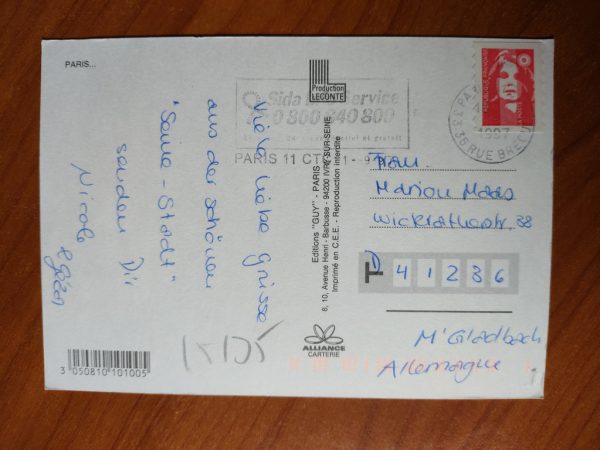 PARIS...
Viele liebe Grüsse
aus der schönen
"Seine-Stadt"
senden Dir
Nicole
Production
LECONTE
Editions "GUY" - PARIS
6, 10, Avenue Henri - Barbusse - 94200 IVRY-SUR-SEINE
Imprimé en C.E.E. - Reproduction interdite
ALLIANCE
CARTERIE
3 050810 101005
Sida Info Service
0 800 840 800
et gratuit
PARIS 11 CT
1997
36 RUE BREGUET
REPUBLIQUE FRANÇAISE
LA POSTE
Frau
Marion Maas
Wickratherstr. 38
D 41236
M'Gladbach
Allemagne